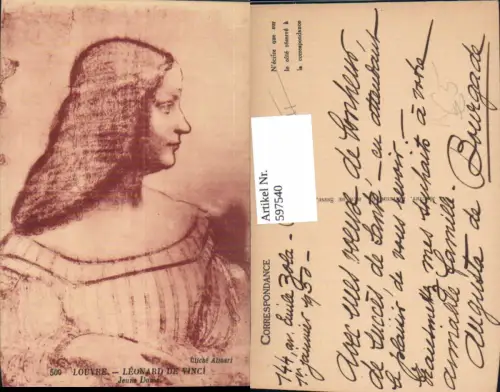 Cliché Alinari
560 LOUVRE. — LÉONARD DE VINCI
Jeune Dame.
N'écrire que sur
le côté réservé à
la correspondance
Artikel Nr.
597540
CORRESPONDANCE
144 av. Emile Zola -
1er janvier 1950 -
Avec mes voeux de bonheur
de succès de santé - en attendant
le plaisir de vous revoir -
mes souhaits à votre
aimable famille -
Augusta de Bourgade